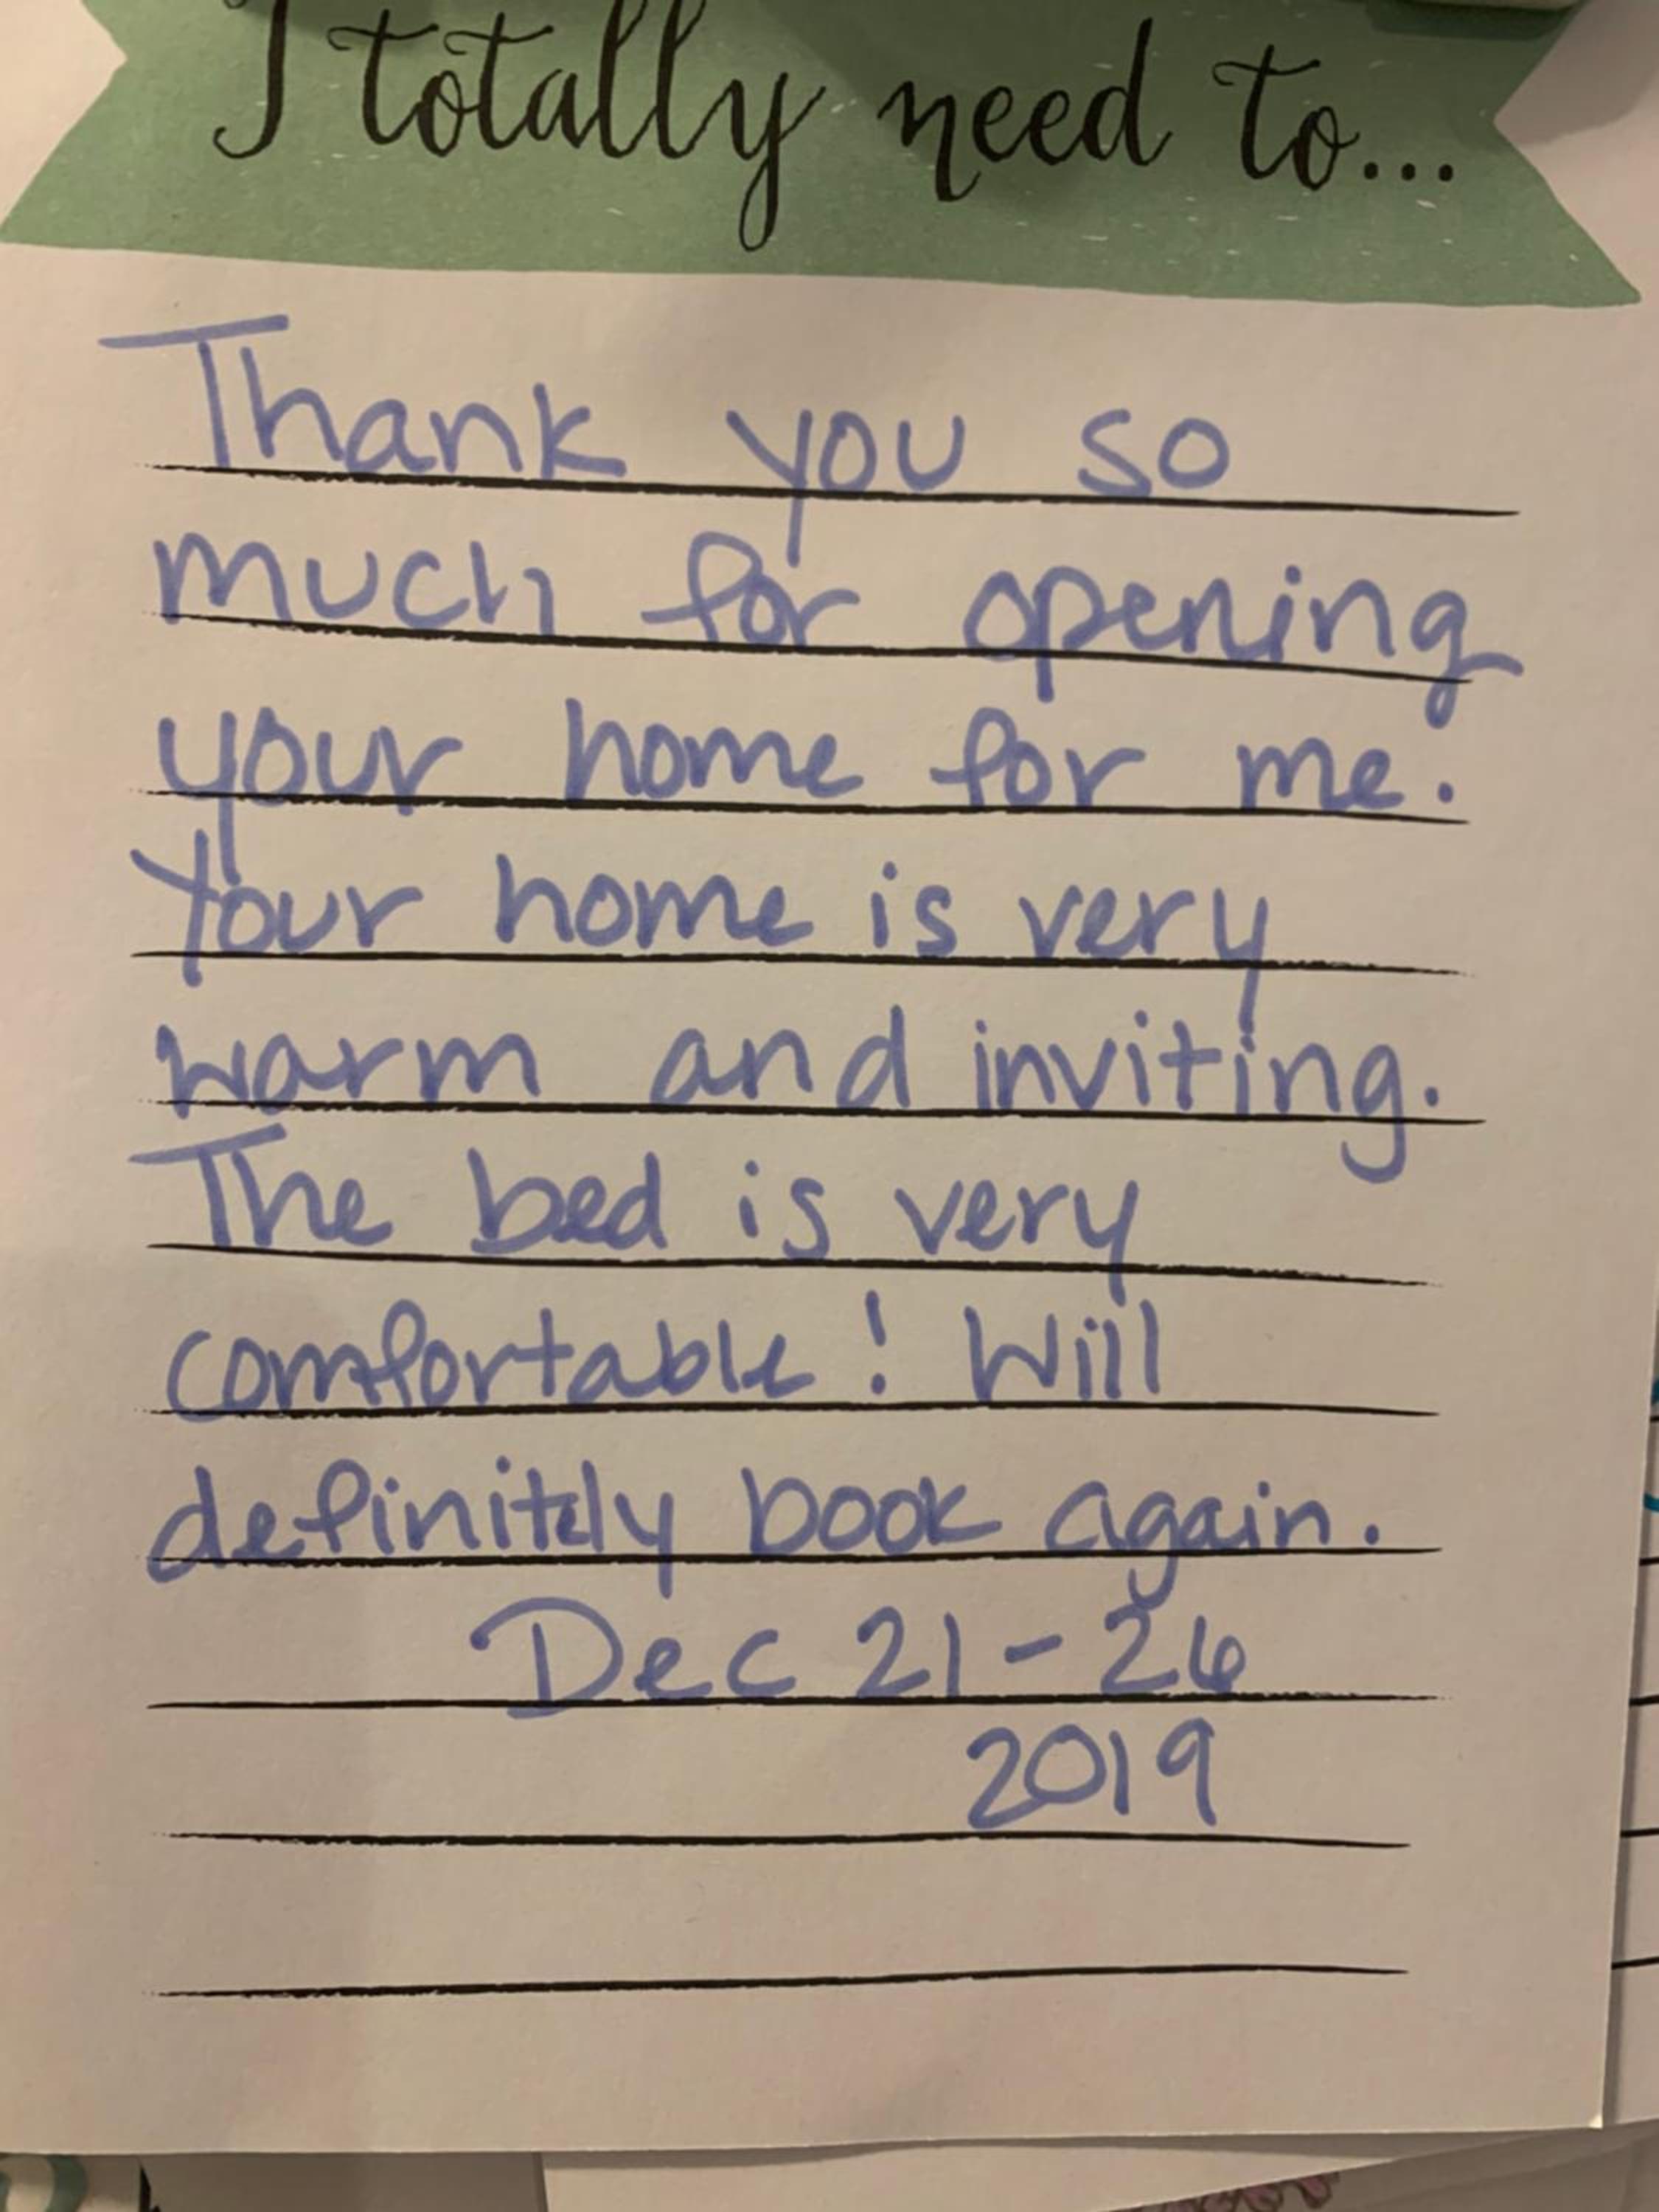 I totally need to...
Thank you so
much for opening
your home for me.
Your home is very
warm and inviting.
The bed is very
comfortable! Will
definitely book again.
Dec 21-26
2019